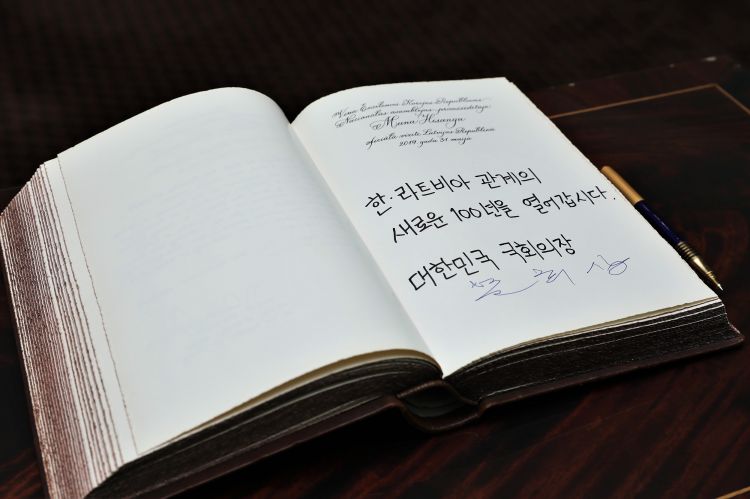 Viņa Ekselences Korejas Republikas
Nacionālās asamblejas priekšsēdētāja
Moon Heesang
oficiālā vizīte Latvijas Republikā
2019. gada 31. maijā
한·라트비아 관계의
새로운 100년을 열어갑시다.
대한민국 국회의장
문희상